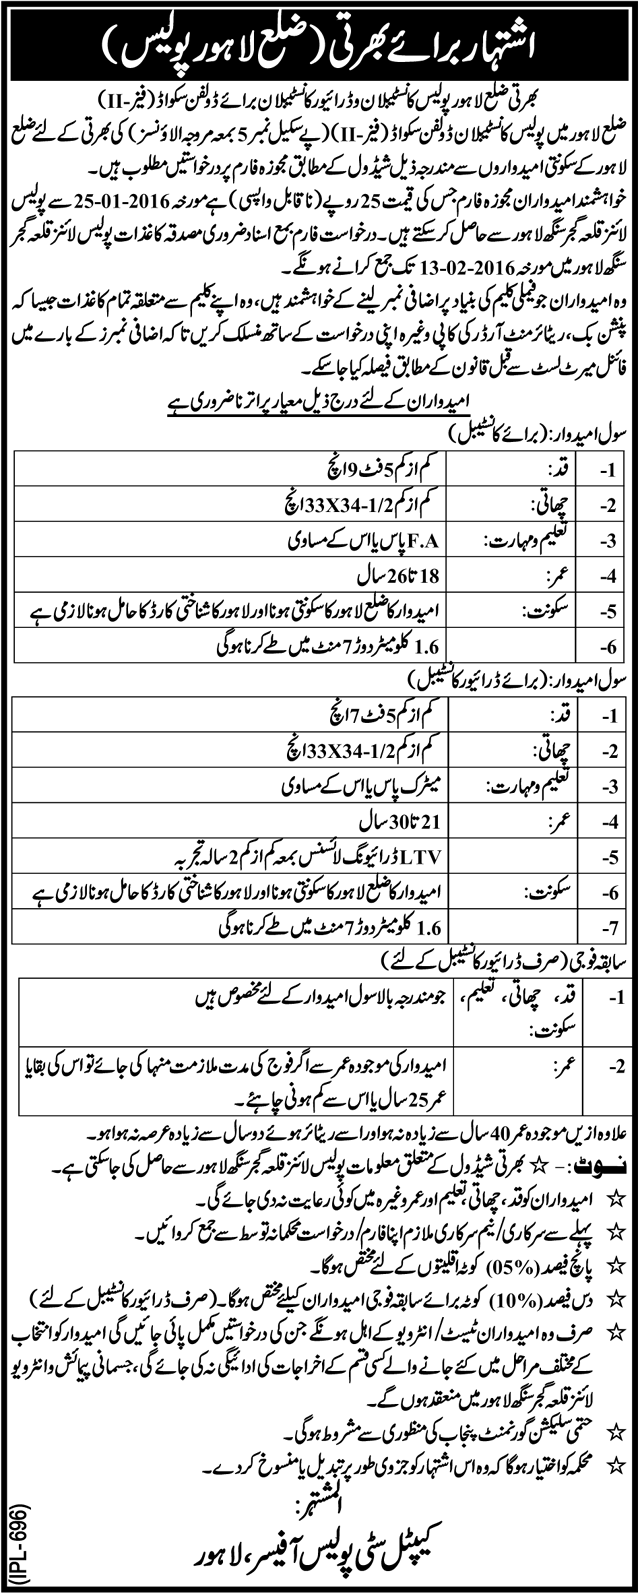 اشتہار برائے بھرتی (ضلع لاہور پولیس)
بھرتی ضلع لاہور پولیس کانسٹیبلان و ڈرائیور کانسٹیبلان برائے ڈولفن سکواڈ (فیز-II)
ضلع لاہور میں پولیس کانسٹیبلان ڈولفن سکواڈ (فیز-II) (پے سکیل نمبر 5 بمعہ مروجہ الاؤنسز) کی بھرتی کے لئے ضلع
لاہور کے سکونتی امیدواروں سے مندرجہ ذیل شیڈول کے مطابق مجوزہ فارم پر درخواستیں مطلوب ہیں۔
خواہشمند امیدواران مجوزہ فارم جس کی قیمت 25 روپے (ناقابل واپسی) ہے مورخہ 25-01-2016 سے پولیس
لائنز قلعہ گجر سنگھ لاہور سے حاصل کر سکتے ہیں۔ درخواست فارم بمع اسناد ضروری مصدقہ کاغذات پولیس لائنز قلعہ گجر
سنگھ لاہور میں مورخہ 13-02-2016 تک جمع کرانے ہونگے۔
وہ امیدواران جو فیملی کلیم کی بنیاد پر اضافی نمبر لینے کے خواہشمند ہیں، وہ اپنے کلیم سے متعلقہ تمام کاغذات جیسا کہ
پنشن بک، ریٹائرمنٹ آرڈر کی کاپی وغیرہ اپنی درخواست کے ساتھ منسلک کریں تاکہ اضافی نمبرز کے بارے میں
فائنل میرٹ لسٹ سے قبل قانون کے مطابق فیصلہ کیا جا سکے۔
امیدواران کے لئے درج ذیل معیار پر اترنا ضروری ہے
سول امیدوار: (برائے کانسٹیبل)
1- قد: کم از کم 5 فٹ 9 انچ
2- چھاتی: کم از کم 33X34-1/2 انچ
3- تعلیم و مہارت: F.A پاس یا اس کے مساوی
4- عمر: 18 تا 26 سال
5- سکونت: امیدوار کا ضلع لاہور کا سکونتی ہونا اور لاہور کا شناختی کارڈ کا حامل ہونا لازمی ہے
6- 1.6 کلو میٹر دوڑ 7 منٹ میں طے کرنا ہوگی
سول امیدوار: (برائے ڈرائیور کانسٹیبل)
1- قد: کم از کم 5 فٹ 7 انچ
2- چھاتی: کم از کم 33X34-1/2 انچ
3- تعلیم و مہارت: میٹرک پاس یا اس کے مساوی
4- عمر: 21 تا 30 سال
5- LTV ڈرائیونگ لائسنس بمعہ کم از کم 2 سالہ تجربہ
6- سکونت: امیدوار کا ضلع لاہور کا سکونتی ہونا اور لاہور کا شناختی کارڈ کا حامل ہونا لازمی ہے
7- 1.6 کلو میٹر دوڑ 7 منٹ میں طے کرنا ہوگی
سابقہ فوجی (صرف ڈرائیور کانسٹیبل کے لئے)
1- قد، چھاتی، تعلیم، جو مندرجہ بالا سول امیدوار کے لئے مخصوص ہیں
سکونت:
2- عمر: امیدوار کی موجودہ عمر سے اگر فوج کی مدت ملازمت منہا کی جائے تو اس کی بقایا
عمر 25 سال یا اس سے کم ہونی چاہئے۔
علاوہ ازیں موجودہ عمر 40 سال سے زیادہ نہ ہو اور اسے ریٹائر ہوئے دو سال سے زیادہ عرصہ نہ ہوا ہو۔
نوٹ:- ☆ بھرتی شیڈول کے متعلق معلومات پولیس لائنز قلعہ گجر سنگھ لاہور سے حاصل کی جا سکتی ہے۔
☆ امیدواران کو قد، چھاتی، تعلیم اور عمر وغیرہ میں کوئی رعایت نہ دی جائے گی۔
☆ پہلے سے سرکاری/ نیم سرکاری ملازم اپنا فارم/ درخواست محکمانہ توسط سے جمع کروائیں۔
☆ پانچ فیصد (05%) کوٹہ اقلیتوں کے لئے مختص ہوگا۔
☆ دس فیصد (10%) کوٹہ برائے سابقہ فوجی امیدواران کیلئے مختص ہوگا۔ (صرف ڈرائیور کانسٹیبل کے لئے)
☆ صرف وہ امیدواران ٹیسٹ/ انٹرویو کے اہل ہونگے جن کی درخواستیں مکمل پائی جائیں گی امیدوار کو انتخاب
کے مختلف مراحل میں کئے جانے والے کسی قسم کے اخراجات کی ادائیگی نہ کی جائے گی، جسمانی پیمائش و انٹرویو
لائنز قلعہ گجر سنگھ لاہور میں منعقد ہوں گے۔
☆ حتمی سلیکشن گورنمنٹ پنجاب کی منظوری سے مشروط ہوگی۔
☆ محکمہ کو اختیار ہوگا کہ وہ اس اشتہار کو جزوی طور پر تبدیل یا منسوخ کر دے۔
المشتہر:
کیپٹل سٹی پولیس آفیسر، لاہور
(IPL-696)